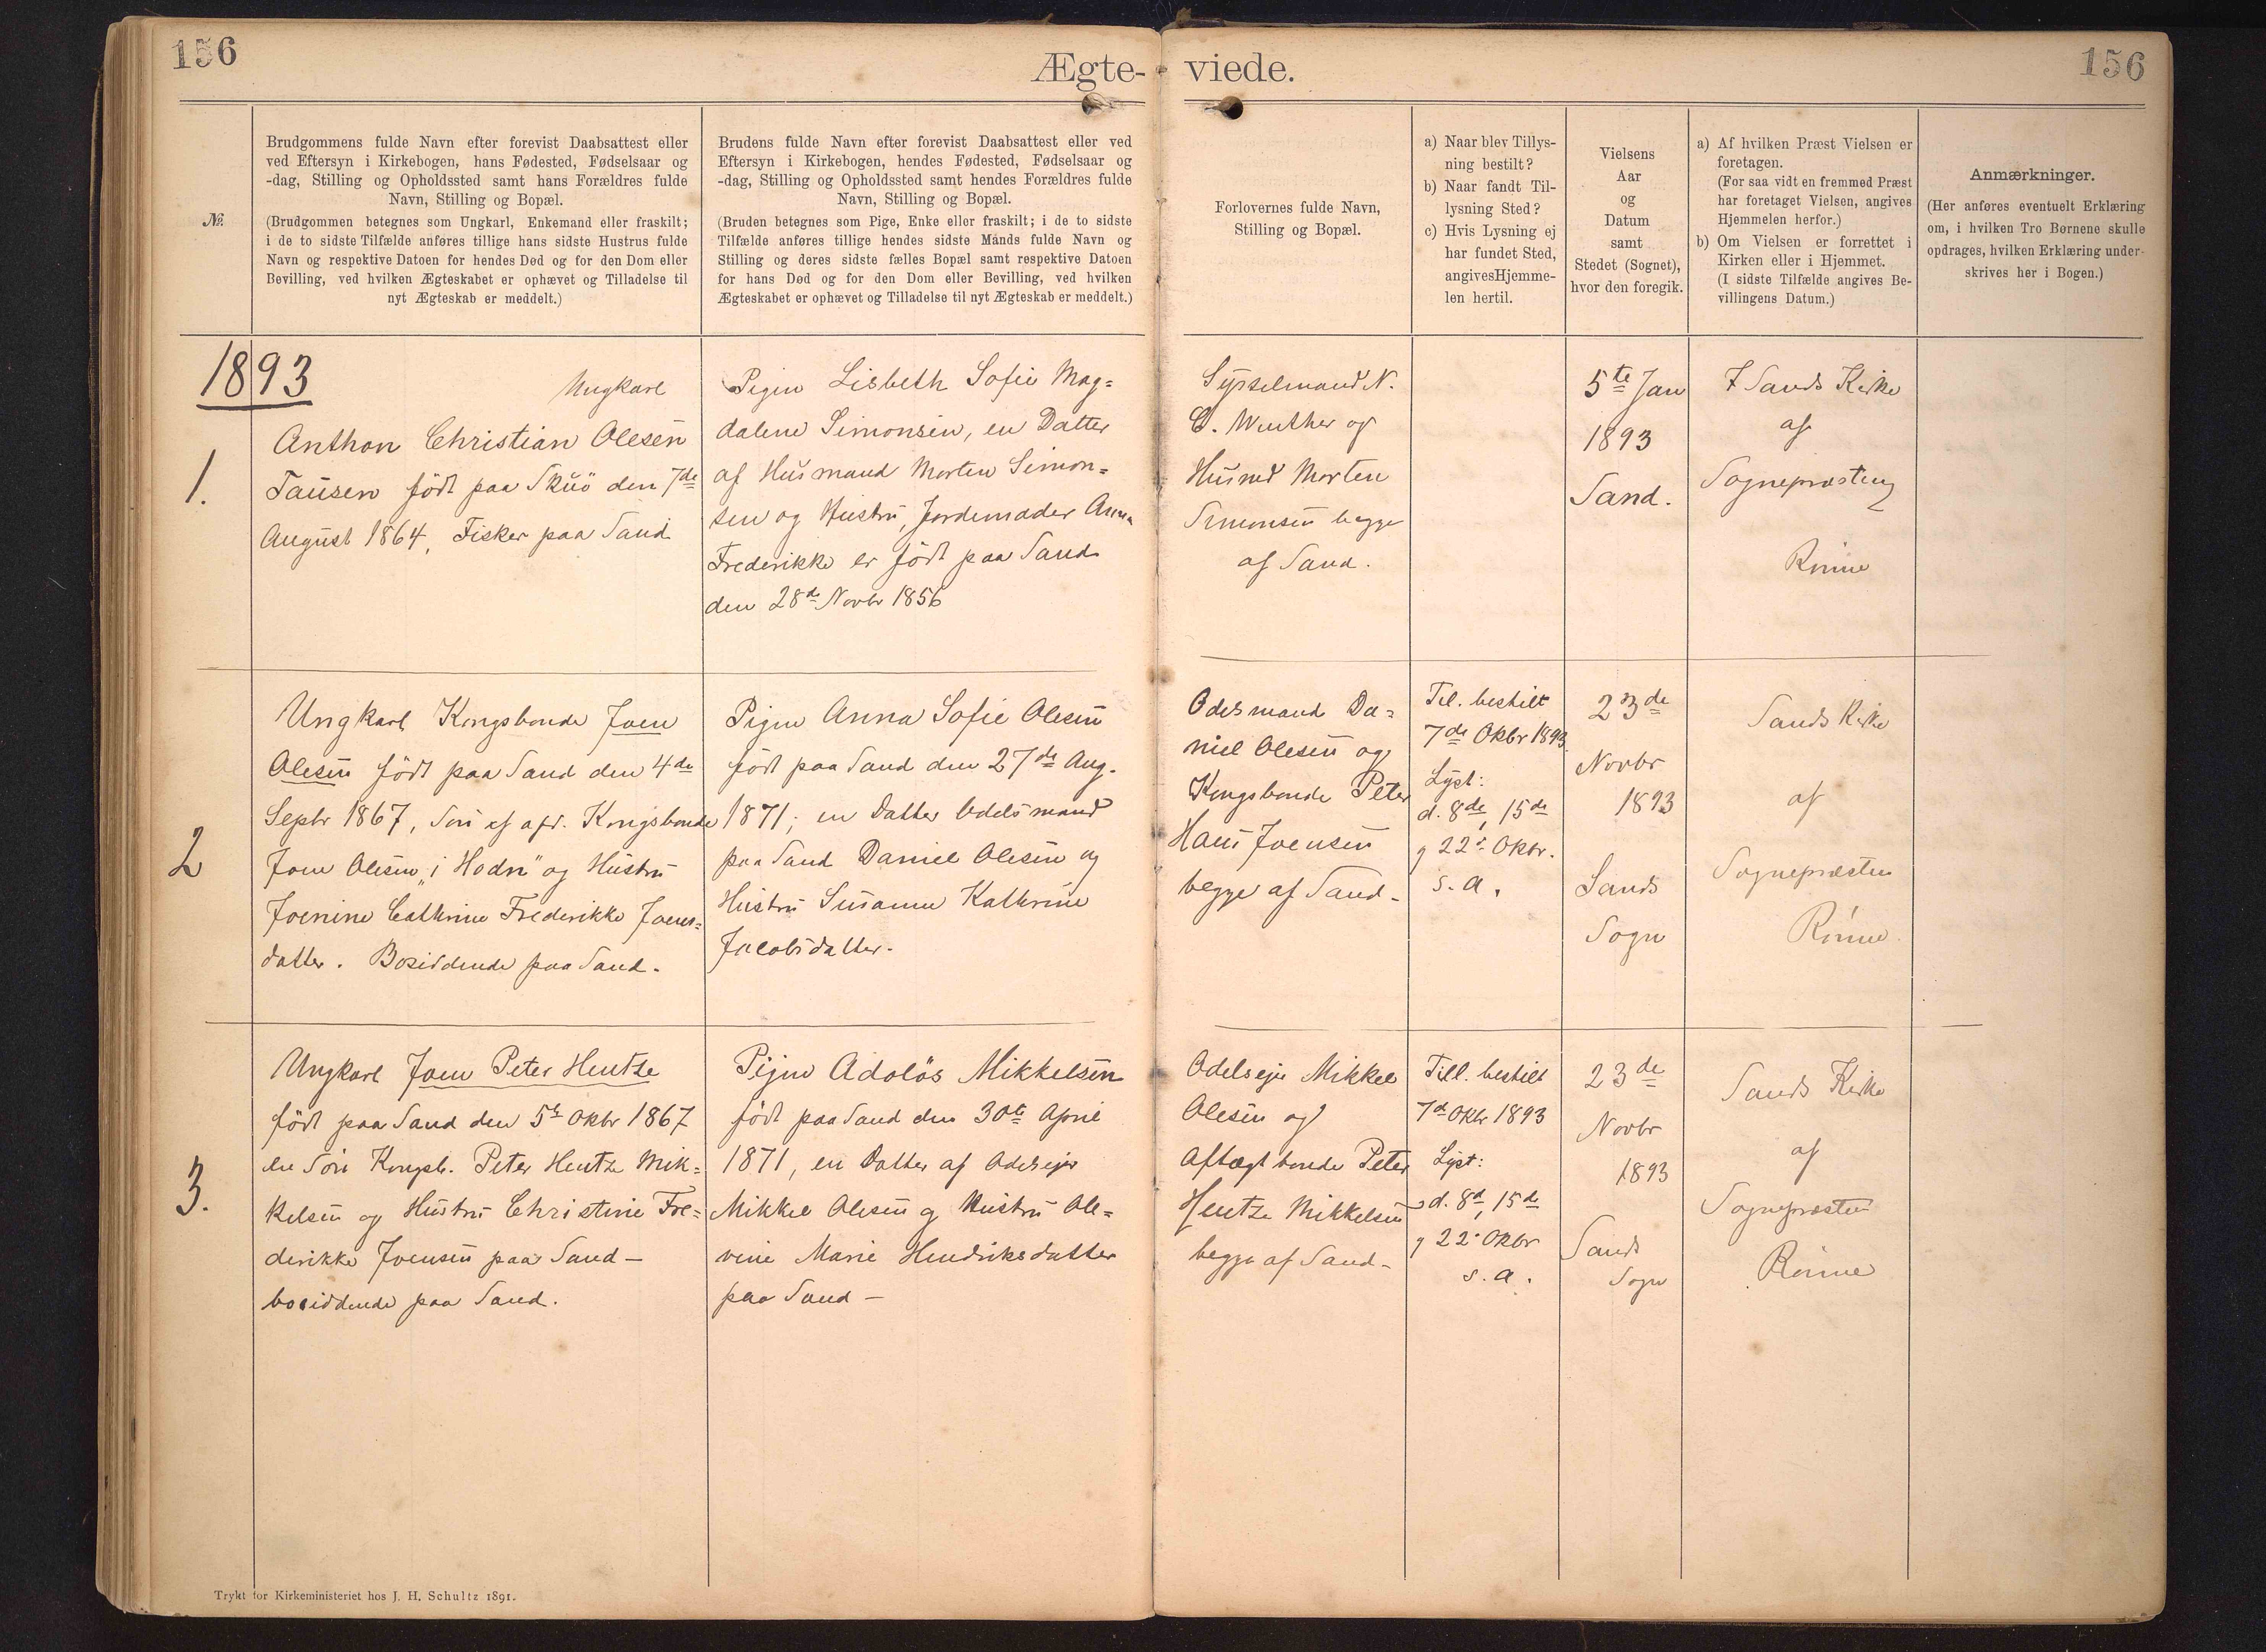 156
Ægte-
viede.
156
№
Brudgommens fulde Navn efter forevist Daabsattest eller
ved Eftersyn i Kirkebogen, hans Fødested, Fødselsaar og
-dag, Stilling og Opholdssted samt hans Forældres fulde
Navn, Stilling og Bopæl.
(Brudgommen betegnes som Ungkarl, Enkemand eller fraskilt;
i de to sidste Tilfælde anføres tillige hans sidste Hustrus fulde
Navn og respektive Datoen for hendes Død og for den Dom eller
Bevilling, ved hvilken Ægteskabet er ophævet og Tilladelse til
nyt Ægteskab er meddelt.)
Brudens fulde Navn efter forevist Daabsattest eller ved
Eftersyn i Kirkebogen, hendes Fødested, Fødselsaar og
-dag, Stilling og Opholdssted samt hendes Forældres fulde
Navn, Stilling og Bopæl.
(Bruden betegnes som Pige, Enke eller fraskilt; i de to sidste
Tilfælde anføres tillige hendes sidste Mands fulde Navn og
Stilling og deres sidste fælles Bopæl samt respektive Datoen
for hans Død og for den Dom eller Bevilling, ved hvilken
Ægteskabet er ophævet og Tilladelse til nyt Ægteskab er meddelt.)
Forlovernes fulde Navn,
Stilling og Bopæl.
a) Naar blev Tillys-
ning bestilt?
b) Naar fandt Til-
lysning Sted?
c) Hvis Lysning ej
har fundet Sted,
angives Hjemme-
len hertil.
Vielsens
Aar
og
Datum
samt
Stedet (Sognet),
hvor den foregik.
a) Af hvilken Præst Vielsen er
foretagen.
(For saa vidt en fremmed Præst
har foretaget Vielsen, angives
Hjemmelen herfor.)
b) Om Vielsen er forrettet i
Kirken eller i Hjemmet.
(I sidste Tilfælde angives Be-
villingens Datum.)
Anmærkninger.
(Her anføres eventuelt Erklæring
om, i hvilken Tro Børnene skulle
opdrages, hvilken Erklæring under-
skrives her i Bogen.)
1893
1.
Ungkarl
Anthon Christian Olesen
Tausen født paa Skuö den 7de
August 1864, Fisker paa Sand
Pigen Lisbeth Sofie Mag=
dalene Simonsen, en Datter
af Husmand Morten Simon=
sen og Hustru, Jordemoder Anna
Frederikke er født paa Sand
den 28de Novbr 1856
Sysselmand N.
C. Winther og
Husmd Morten
Simonsen begge
af Sand.
5te Jan
1893
Sand.
I Sands Kirke
af
Sognepræsten
Rönne
2
Ungkarl Kongsbonde Joen
Olesen født paa Sand den 4de
Septr 1867, Søn af afd. Kongsbonde
Joen Olesen „i Hodn" og Hustru
Joenine Cathrine Frederikke Joens=
datter. Bosiddende paa Sand.
Pigen Anna Sofie Olesen
født paa Sand den 27de Aug.
1871; en Datter Odelsmand
paa Sand Daniel Olesen og
Hustru Susanne Kathrine
Jacobsdatter.
Odelsmand Da=
niel Olesen og
Kongsbonde Peter
Hans Joensen
begge af Sand-
Til. bestilt
7de Oktbr 1893.
Lyst:
d. 8de, 15de
og 22de Oktbr.
s. a.
23de
Novbr
1893
Sands
Sogn
Sands Kirke
af
Sognepræsten
Rönne.
3.
Ungkarl Joen Peter Hentze
født paa Sand den 5te Oktbr 1867
en Søn Kongsb. Peter Hentze Mik=
kelsen og Hustru Christine Fre=
derikke Joensen paa Sand—
bosiddende paa Sand.
Pigen Adolös Mikkelsen
født paa Sand den 30te April
1871, en Datter af Odelsejer
Mikkel Olesen og Hustru Ole=
vine Marie Hendriksdatter
paa Sand—
Odelsejer Mikkel
Olesen og
Aftægtbonde Peter
Hentze Mikkelsen
begge af Sand-
Till. bestilt
7de Oktbr 1893
Lyst:
d. 8de, 15de
og 22de Oktbr
s. a.
23de
Novbr
1893
Sands
Sogn
Sands Kirke
af
Sognepræsten
Rönne
Trykt for Kirkeministeriet hos J. H. Schultz 1891.